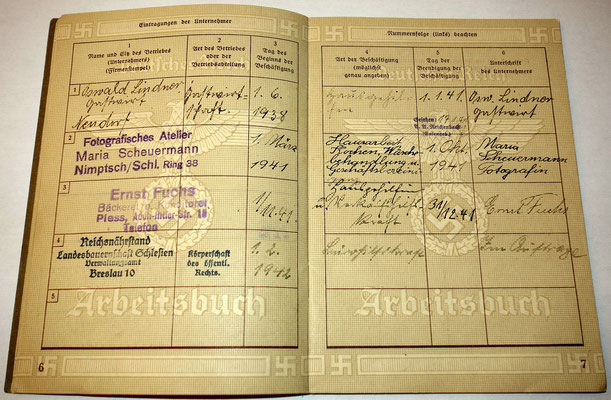 Eintragungen der Unternehmer
1
Name und Sitz des Betriebes
(Unternehmers)
(Firmenstempel)
2
Art des Betriebes
oder der
Betriebsabteilung
3
Tag des
Beginns der
Beschäftigung
1
Oswald Lindner
Gastwirt
Neudorf
Gastwirt-
schaft.
1. 6.
1938
2
Fotografisches Atelier
Maria Scheuermann
Nimptsch/Schl. Ring 38
1. März
1941
3
Ernst Fuchs
Bäckerei u. Konditorei
Pless,
Telefon
1/
11.41.
4
Reichsnährstand
Landesbauernschaft Schlesien
Verwaltungsamt
Breslau 10
Körperschaft
des öffentl.
Rechts.
1. 2.
1942
5
Arbeitsbuch
6
Nummernfolge (links) beachten
4
Art der Beschäftigung
(möglichst
genau angeben)
5
Tag der
Beendigung der
Beschäftigung
6
Unterschrift
des Unternehmers
1. 1. 41.
Osw. Lindner
Gastwirt
Gesehen
Hausarbeit,
Kochen, Wäsche-
behandlung u.
1. Okt.
1941
Maria
Scheuermann
Fotografin
Hausgehilfin
31/
12.41
Ernst Fuchs
Arbeitsbuch
7